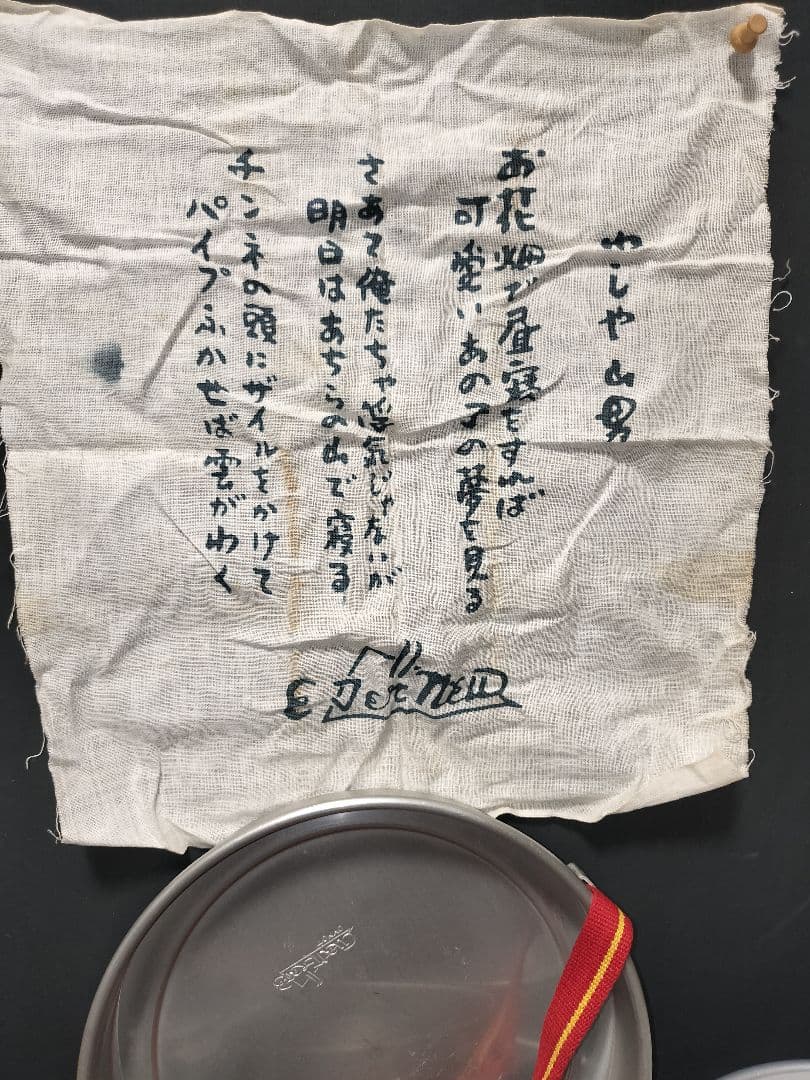 わしゃ山男
お花畑で昼寝をすれば
可愛いあの子の夢を見る
さあて俺たちゃ浮気じゃないが
明日はあちらの山で寝る
チンネの頭にザイルをかけて
パイプふかせば雲がわく